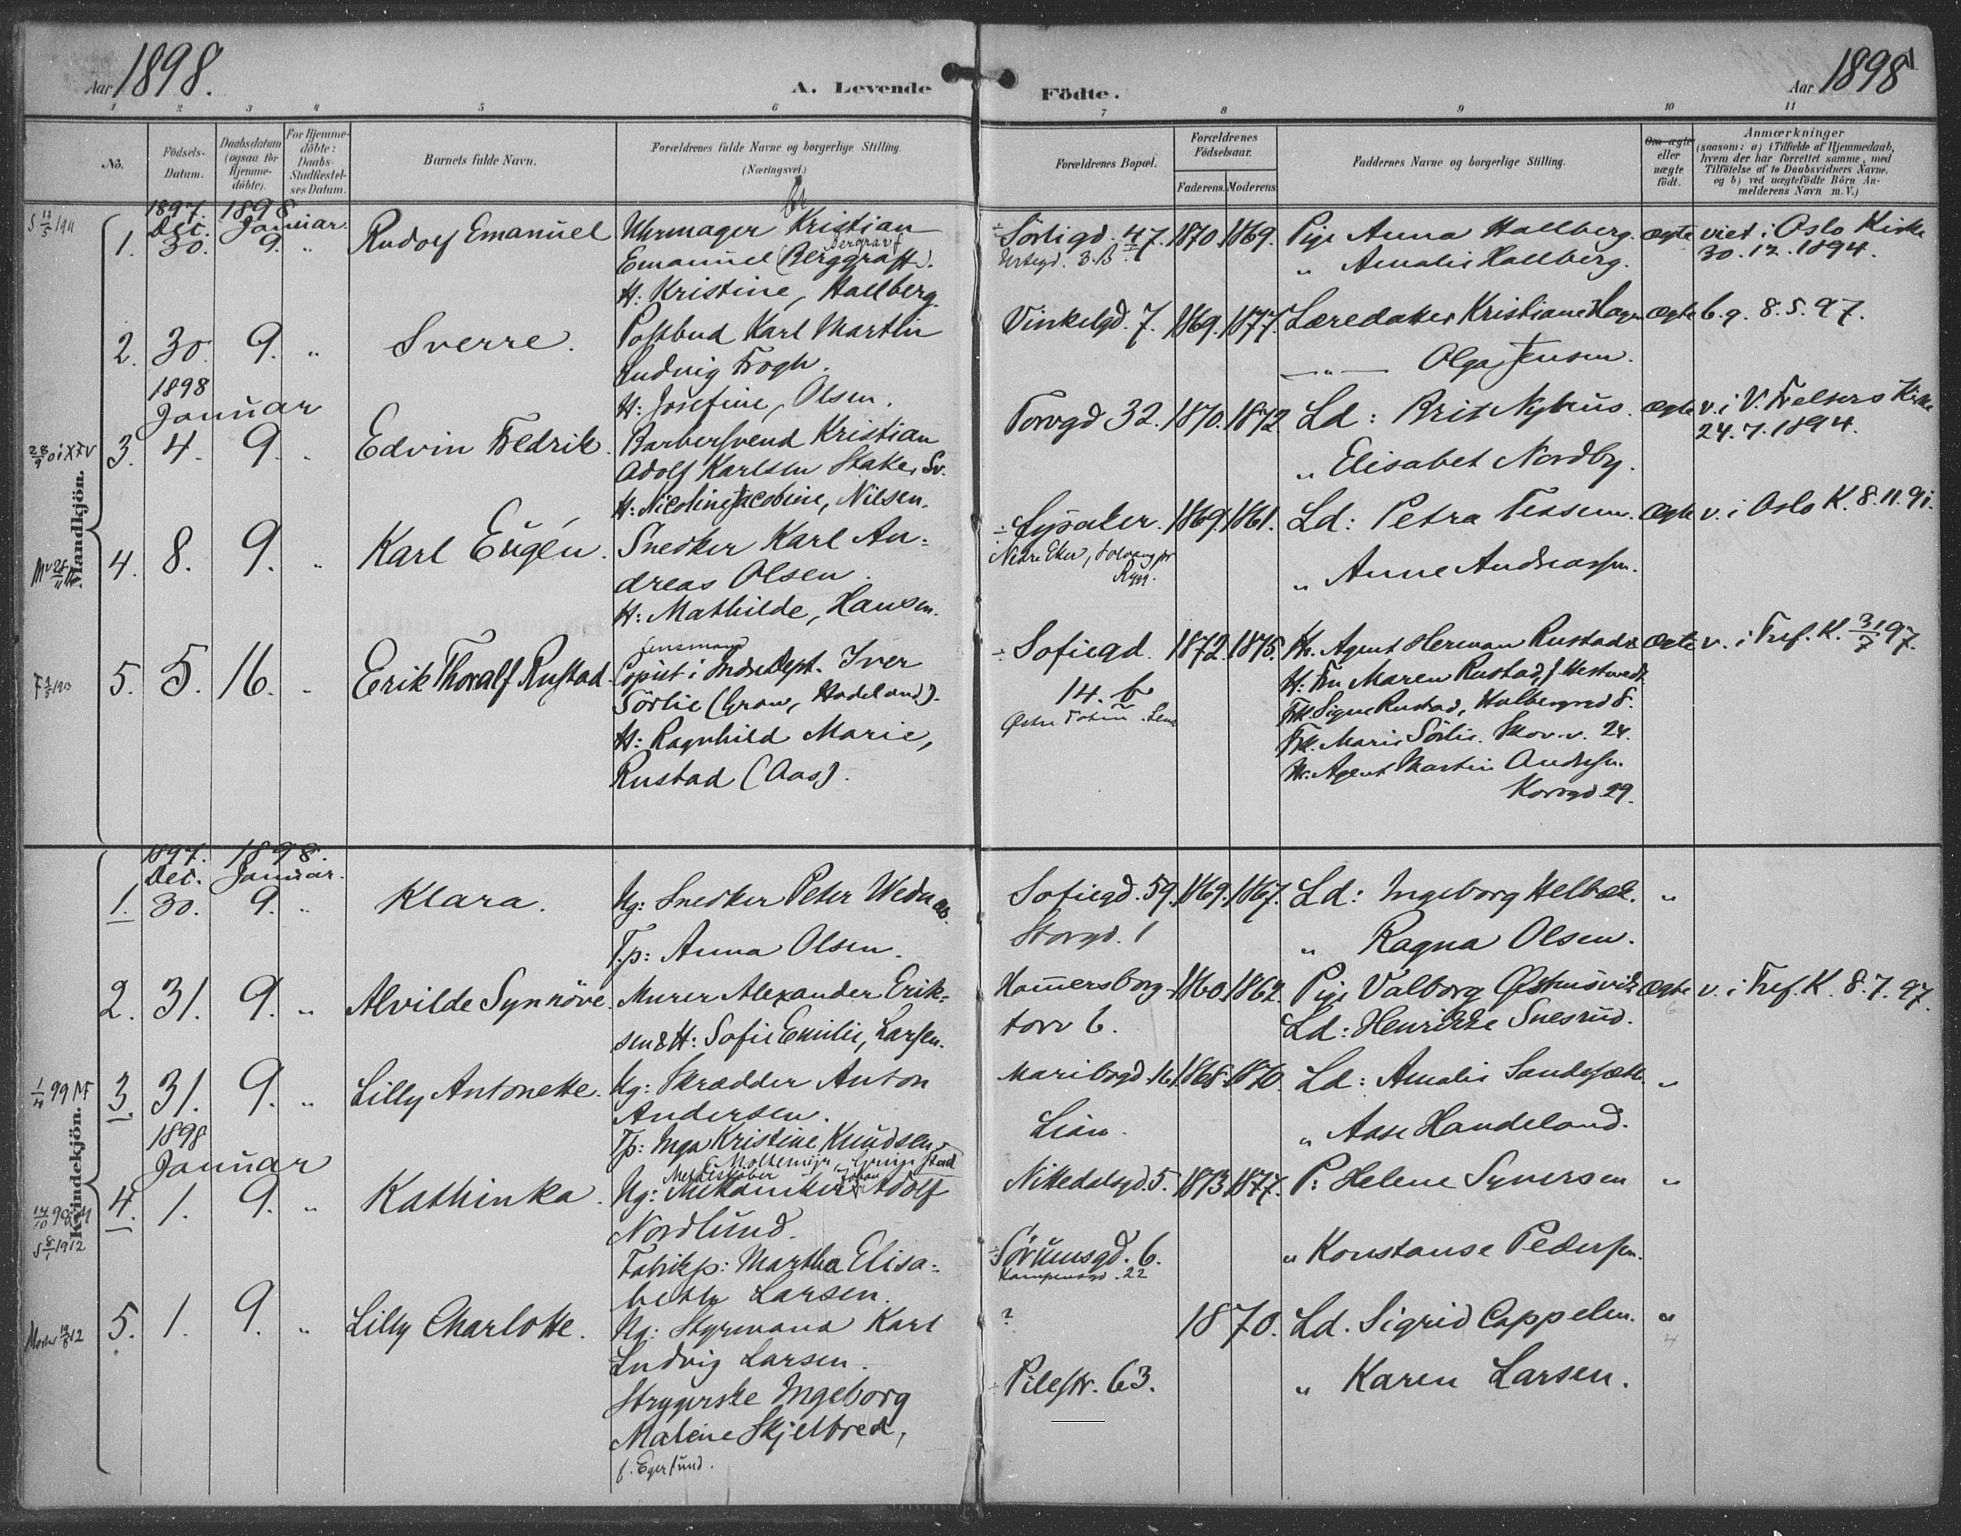 Aar 1898.
A. Levende
Födte.
Aar 1898
1 2 3 4 5 6 7 8 9 10 11
No.
Födsels-Datum.
Daabsdatum (ogsaa for Hjemme-döbte).
For Hjemme-döbte: Daabs-Stadfæstel-ses Datum.
Barnets fulde Navn.
Forældrenes fulde Navne og borgerlige Stilling.
(Næringsvei.)
Forældrenes Bopæl.
Forældrenes Födselsaar.
Faderens. Moderens.
Faddernes Navne og borgerlige Stilling.
Om ægte eller uægte födt.
Anmærkninger
(saasom: a) i Tilfælde af Hjemmedaab,
hvem der har forrettet samme, med
Tilföielse af to Daabsvidners Navne,
og b) ved uægtefödte Börn An-
melderens Navn m. V.)
Mandkjön.
1897. 1898
Dec. Januar
1. 30. 9. " Rudolf Emanuel
Uhrmager Kristian
Emanuel (Berggraff).
H: Kristine, Hallberg.
Sörligd. 47. 1870. 1869.
Urtegd. 3. B.
Pige Anna Hallberg.
" Amalie Hallberg.
ægte viet i Oslo Kirke
30. 12. 1894.
2. 30. 9. " Sverre.
Postbud Karl Martin
Ludvig Frogh.
H: Josefine, Olsen.
Vinkelgd. 7. 1869. 1877.
Læredatter Kristiane Hagen
—"— Olga Jensen.
ægte b. g. 8. 5. 97.
1898
Januar
3. 4. 9. " Edvin Fredrik.
Barbersvend Kristian
Adolf Karlsen Staker, Sv.
H: Nicoline Jacobine, Nilsen.
Torvgd 32. 1870. 1872
Ld: Brit Nyhus.
" Elisabet Nordby.
ægte v. i V. Frelsers Kirke
24. 7. 1894.
4. 8. 9. " Karl Eugén.
Snedker Karl An=
dreas Olsen.
H: Mathilde, Hansen.
Lysaker. 1869. 1861.
Nedre Eker,
Ld: Petra Tessem.
" Anne Andreassen.
ægte v. i Oslo K. 8. 11. 91.
5. 5. 16. " Erik Thoralf Rustad.
Lensmand
Copist i Indredept. Iver
Sörlie (Gran, Hadeland).
H: Ragnhild Marie,
Rustad (Aas).
Sofiegd. 1872. 1875.
14. b
Östre Toten. Lena
Hr. Agent Herman Rustad
H: Fru Maren Rustad,
Frk. Signe Rustad, Holbergsgd 8.
Frk. Marie Sörlie. Skov. v. 24.
Hr. Agent Martin Andresen.
Korsgd. 29.
ægte v. i Tref. K. 31/7 97.
Kvindekjön.
1897. 1898.
Dec. Januar.
1. 30. 9. " Klara.
Ug: Snedker Peter
T.p: Anna Olsen.
Sofiegd. 59. 1869. 1867.
Storgd. 1
Ld: Ingeborg Helbæk.
" Ragna Olsen.
"
2. 31. 9. " Alvilde Synnöve.
Murer Alexander Erik=
sen & H: Sofie Emilie, Larsen.
Hammersborg- 1860. 1862.
torv 6.
Pige Valborg Östensvik
Ld: Henrikke Snesrud.
ægte v. i Tref. K. 8. 7. 97.
1/4 99 MF
3. 31. 9. " Lilly Antonette.
Ug: Skrædder Anton
Andersen.
Tp: Inga Kristine Knudsen
Maribogd. 16. 1868. 1870.
Lian.
Ld: Amalie Sandesæth.
" Aase Handeland.
"
1898
Januar
4. 1. 9. " Kathinka.
Metalstøber Johan
Ug: Mekaniker Adolf
Nordlund.
Fabrikp: Martha Elisa=
beth Larsen.
Nittedalsgd. 5. 1873. 1877.
Sörumsgd. 6.
Kampensgd. 22
P: Helene Syversen
" Konstanse Pedersen.
"
5. 1. 9. " Lilly Charlotte.
Ug: Styrmand Karl
Ludvig Larsen.
Strygerske Ingeborg
Malene Skjelbred,
f. Egersund.
? 1870.
Pilestr. 63.
Ld. Sigrid Cappelen.
" Karen Larsen.
"